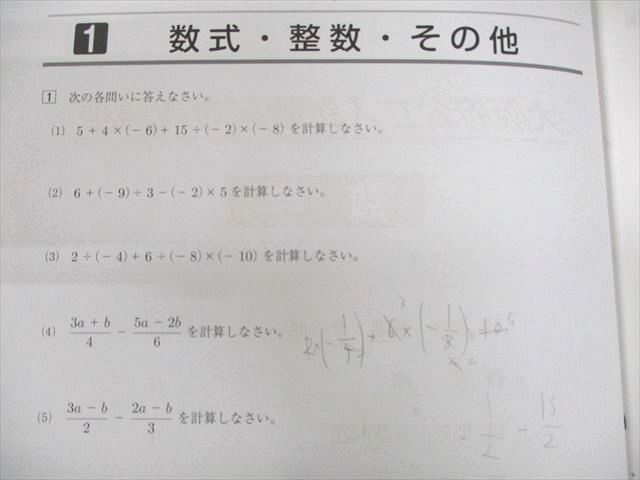 1 数式・整数・その他
1 次の各問いに答えなさい。
(1) 5 + 4 ×(− 6)+ 15 ÷(− 2)×(− 8) を計算しなさい。
(2) 6 +(− 9)÷ 3 −(− 2)× 5 を計算しなさい。
(3) 2 ÷(− 4)+ 6 ÷(− 8)×(− 10) を計算しなさい。
(4) (3a + b)/4 − (5a − 2b)/6 を計算しなさい。
(5) (3a − b)/2 − (2a − b)/3 を計算しなさい。